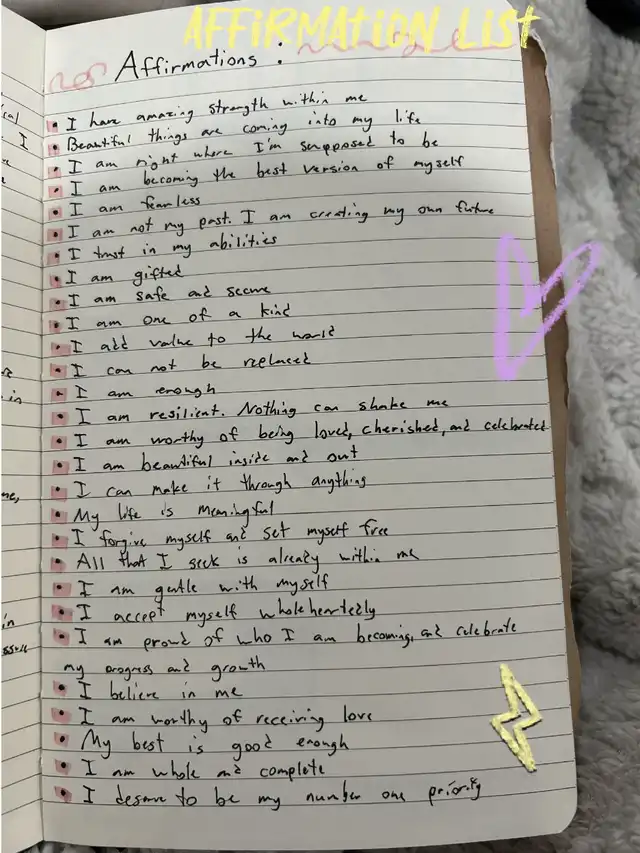 AFFIRMATION LIST
Affirmations :
• I have amazing strength within me
• Beautiful things are coming into my life
• I am right where I'm supposed to be
• I am becoming the best version of myself
• I am fearless
• I am not my past. I am creating my own future
• I trust in my abilities
• I am gifted
• I am safe and secure
• I am one of a kind
• I add value to the world
• I can not be replaced
• I am enough
• I am resilient. Nothing can shake me
• I am worthy of being loved, cherished, and celebrated
• I am beautiful inside and out
• I can make it through anything
• My life is meaningful
• I forgive myself and set myself free
• All that I seek is already within me
• I am gentle with myself
• I accept myself wholeheartedly
• I am proud of who I am becoming, and celebrate
my progress and growth
• I believe in me
• I am worthy of receiving love
• My best is good enough
• I am whole and complete
• I deserve to be my number one priority